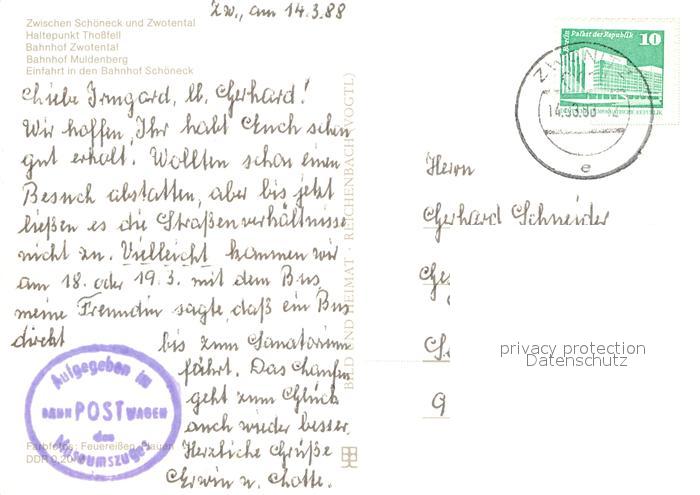 Zwischen Schöneck und Zwotental
Haltepunkt Thoßfell
Bahnhof Zwotental
Bahnhof Muldenberg
Einfahrt in den Bahnhof Schöneck
Zw., am 14.3.88
Liebe Irmgard, lb. Gerhard!
Wir hoffen, Ihr habt Euch schon
gut erholt. Wollten schon einen
Besuch abstatten, aber bis jetzt
ließen es die Straßenverhältnisse
nicht zu. Vielleicht kommen wir
am 18. oder 19.3. mit dem Bus,
meine Freundin sagte, daß ein Bus
direkt bis zum Sanatorium
fährt. Das Laufen
geht zum Glück
auch wieder besser.
Herzliche Grüße
Erwin u. Lotte.
Aufgegeben im
BAHNPOSTWAGEN
des
Museumszuges
Farbfotos: Feuereißen, Plauen
DDR 0,20 M
BILD UND HEIMAT · REICHENBACH (VOGTL)
Berlin Palast der Republik 10
14.03.88
e
Herrn
Gerhard Schneider
privacy protection
Datenschutz